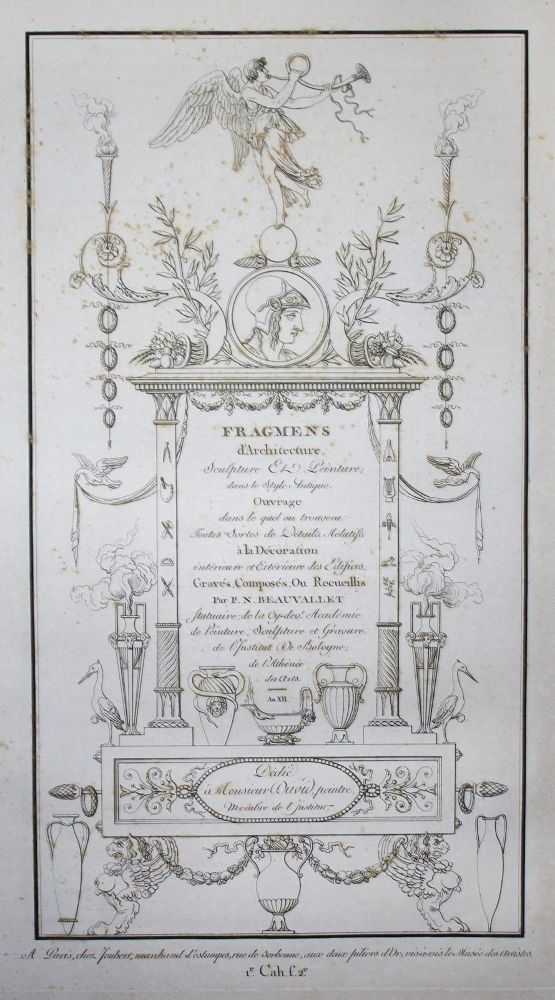 FRAGMENS
d'Architecture,
Sculpture Et Peinture;
dans le Style Antique.
Ouvrage
dans le quel on trouvera:
Toutes Sortes de Détails Relatifs
à la Décoration
intérieure et Extérieure des Edifices,
Gravés, Composés, Ou Recueillis
Par P. N. BEAUVALLET
Statuaire, de la Cy-devt. Académie
de Peinture, Sculpture et Gravure
de l'Institut De Bologne,
de l'Athénée
des Arts.
An XII.
Dédié
à Monsieur David, peintre,
Membre de l'Institut.
A Paris, chez Joubert, marchand d'éstampes, rue de Sorbonne, aux deux piliers d'Or, vis-à-vis le Musée des Artistes.
1er. Cah. f. 2e.